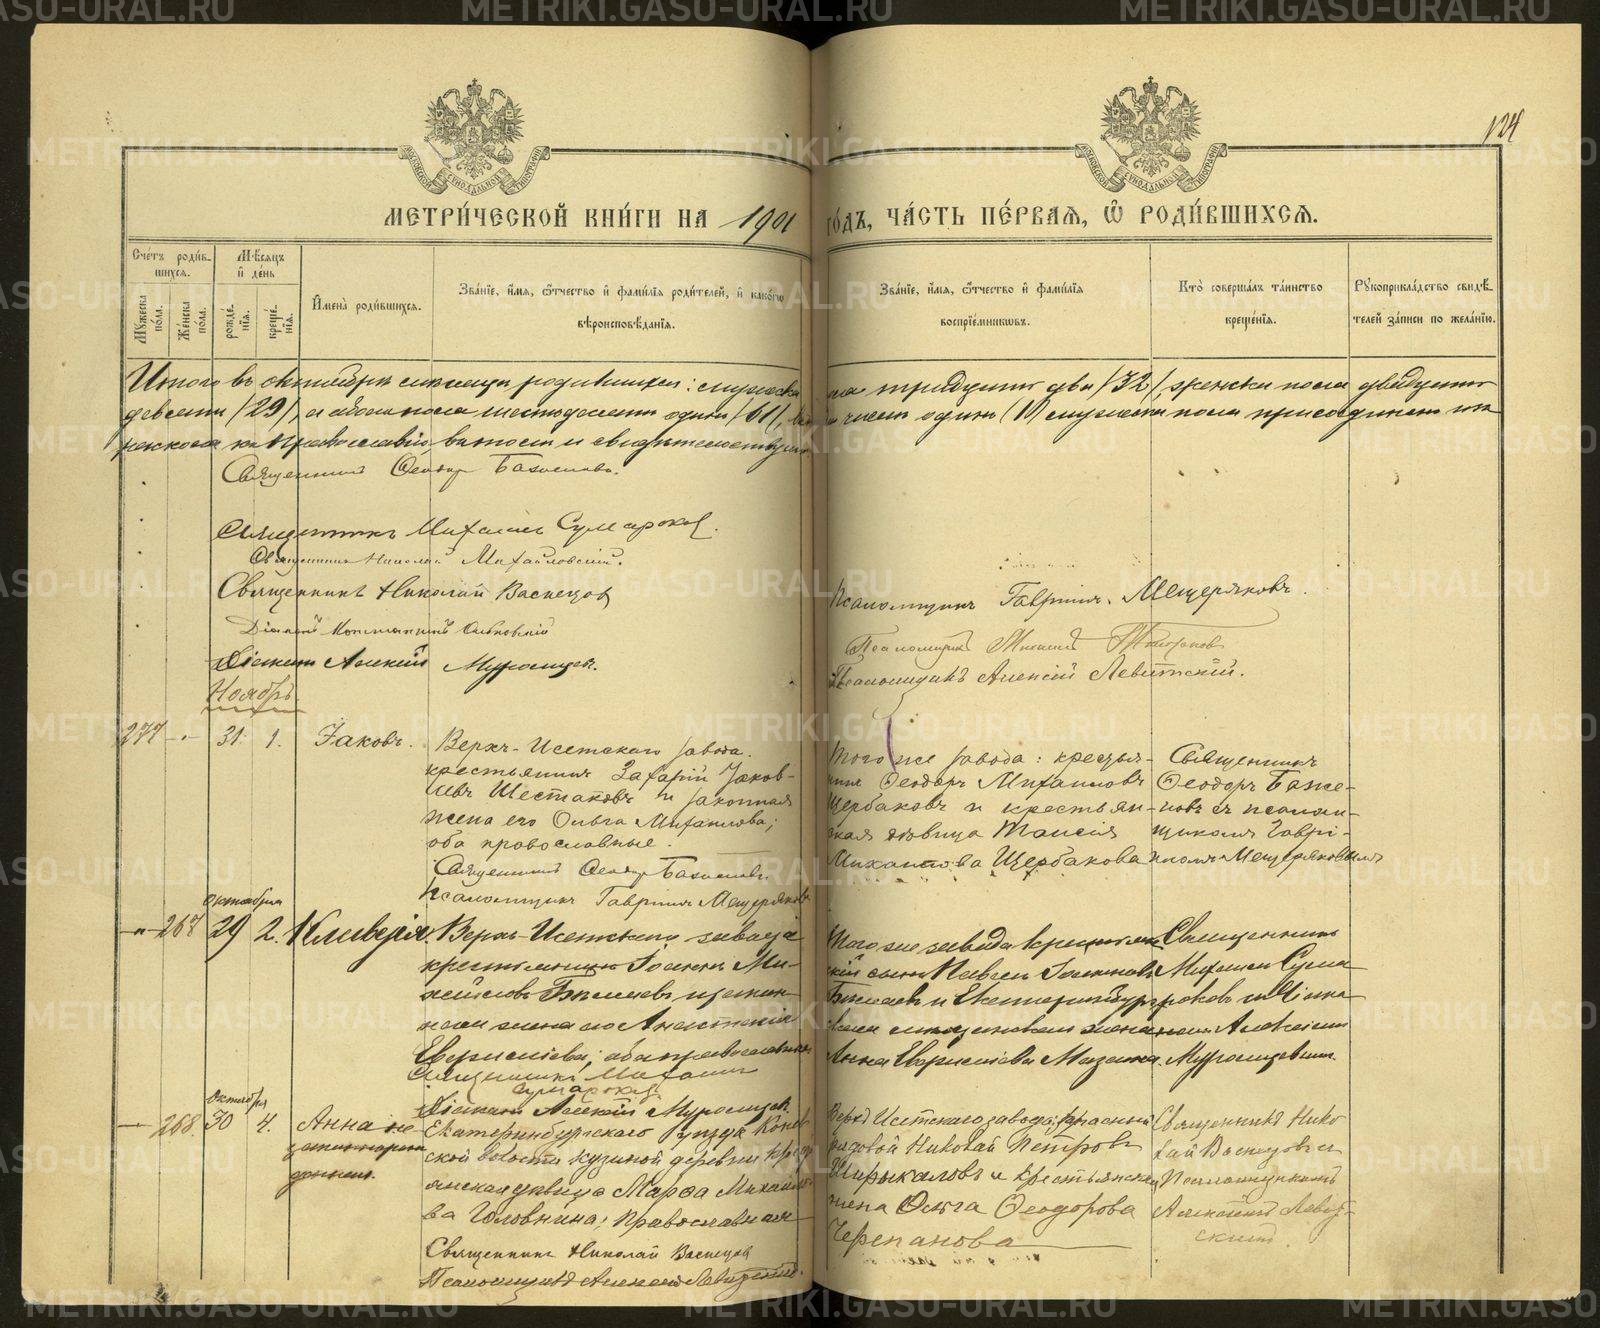 METRIKI.GASO-URAL.RU
124
МЕТРИ́ЧЕСКОЙ КНИ́ГИ НА 1901 ГО́ДЪ, ЧА́СТЬ ПЕ́РВАЯ, Ѿ РОДИ́ВШИХСЯ.
Счетъ роди́вшихся.
Му́жеска по́ла.
Же́нска по́ла.
Мѣсяцъ и҆ де́нь
рожде́нїя.
креще́нїя.
И҆мена̀ роди́вшихся.
Зва́нїе, и҆́мя, ѻ҆́тчество и҆ фами́лїя роди́телей, и҆ како́гѡ вѣроисповѣ́данїя.
Зва́нїе, и҆́мя, ѻ҆́тчество и҆ фами́лїя воспрїе́мниковъ.
Кто̀ соверша́лъ та́инство креще́нїя.
Рꙋкоприкла́дство свидѣ́телей за́писи по жела́нїю.
Итого въ октябрѣ мѣсяцѣ родившихся: мужеска пола тридцать два /32/, женска пола двадцать
девять /29/, а обоего пола шестьдесятъ одинъ /61/, въ томъ числѣ одинъ (1) мужеска пола присоединенъ
къ Православію, въ томъ и свидѣтельствуемъ
Священникъ Ѳеодоръ Баженовъ.
Священникъ Михаилъ Сумароковъ.
Священникъ Николай Михайловскій.
Священникъ Николай Васнецовъ
Псаломщикъ Гавріилъ Мещеряковъ.
Діаконъ Константинъ
Псаломщикъ Михаилъ
Діаконъ Алексій Муромцевъ.
Псаломщикъ Алексій Левитскій.
Ноябрь
277 - 31. 1. Іаковъ.
Верхъ-Исетскаго завода
крестьянинъ Захарій Іаков-
левъ Шестаковъ и законная
жена его Ольга Михаилова;
оба православные.
Священникъ Ѳеодоръ Баженовъ
Псаломщикъ Гавріилъ Мещеряковъ
Того же завода: крестья-
нинъ Ѳеодоръ Михаиловъ
Щербаковъ и крестьян-
ская дѣвица Таисія
Михаилова Щербакова
Священникъ
Ѳеодоръ Баже-
новъ съ псалом-
щикомъ Гаврі-
иломъ Мещеряковымъ
октября
- 267 29 2. Кливерія.
Верхъ-Исетскаго завода
крестьянинъ Іоаннъ Ми-
хайловъ и закон-
ная жена его Анастасія
оба православные
Священникъ Михаилъ
Сумароковъ
Діаконъ Алексій Муромцевъ.
Того же завода крестьян-
скій сынъ Павелъ Іоанновъ
и Екатеринбург-
ская мѣщанская жена
Анна
Священникъ
Михаилъ Сума-
роковъ и діако-
номъ Алексіемъ
Муромцевымъ.
октября
- 268. 30 4. Анна не-
законнорож-
денная.
Екатеринбургскаго уѣзда
ской волости Кузиной деревни крестьянская
дѣвица Марѳа Михайло-
ва Головнина, православная
Священникъ Николай Васнецовъ
Псаломщикъ Алексій Левитскій.
Верхъ Исетскаго завода запасный
рядовой Николай Петровъ
Ширыкаловъ и крестьянская
жена Ольга Ѳеодорова
Черепанова
Священникъ Нико-
лай Васнецовъ съ
Псаломщикомъ
Алексіемъ Левит-
скимъ.